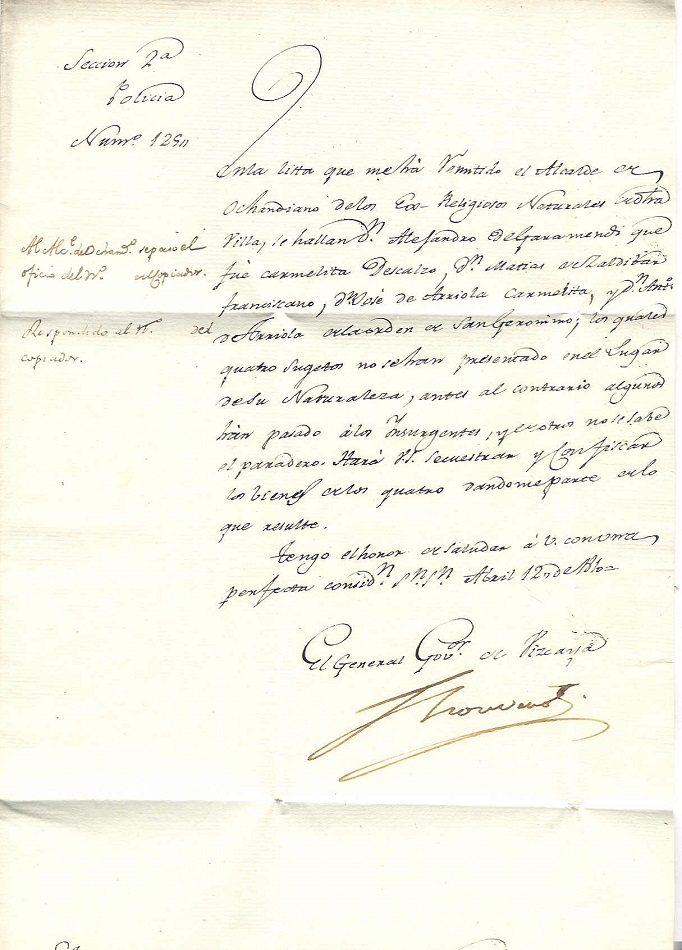 Seccion 2ª
Policia
Numº. 1290
En la lista que me há remitido el Alcalde de
Ochandiano de los Ex-Religiosos Naturales de dha
Villa, se hallan Dn. Alejandro de Garamendi que
fué Carmelita Descalzo, Dn. Matias de Zaldibar
franciscano, Dn. José de Arriola Carmelita, y Dn. Antº.
de Arriola de la orden de San Geronimo; los quales
quatro sugetos no se han presentado en el Lugar
de su Naturaleza, antes al contrario algunos
hán pasado á los Insurgentes, y de otros no se sabe
el paradero. Hará V.S. secuestrar y Confiscar
los bienes de los quatro dandome parte de lo
que resulte.
Tengo el honor de saludar á V. con una
perfecta considn. Abril 12 de
El General Govor. de Vizcaya
Thouvenot
Al Alce. de Ochandº. se pasó el
oficio del Nº. del Copiador.
Respondido al Nº. del
copiador.